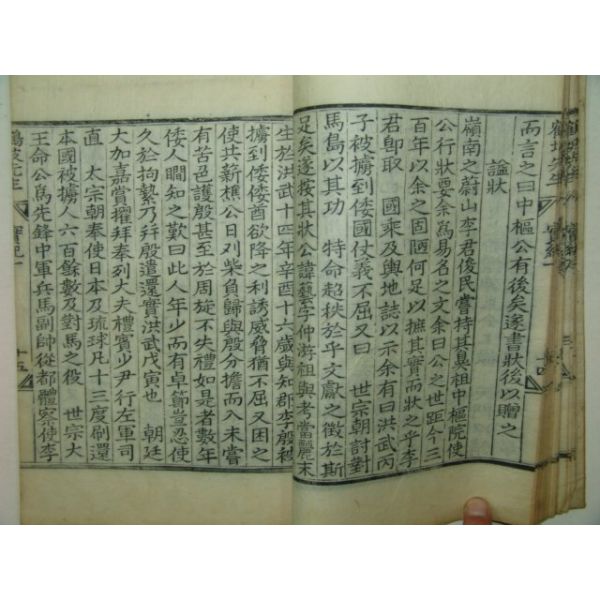 而言之曰中樞公有後矣遂書狀後以贈之
諡狀
嶺南之蔚山李君俊民嘗持其鼻祖中樞院使
公行狀要余爲易名之文余曰公之世距今三
百年以余之固陋何足以摭其實而狀之乎李
君卽取 國乘及輿地誌以示余有曰洪武丙
子被擄到倭國仗義不屈又曰 世宗朝討對
馬島以其功 特命超秩於乎文獻之徵於斯
足矣遂按其狀公諱藝字仲游祖與考當麗末
生於洪武十四年辛酉十六歲與知郡李殷被
擄到倭倭酋欲降之利誘威脅猶不屈又困之
使共薪樵公日刈柴負歸與殷分擔而入未嘗
有苦邑護殷甚至於周旋不失禮如是者數年
倭人瞷知之歎曰此人年少而有卓節豈忍使
久於拘縶乃幷殷遣還實洪武戊寅也 朝廷
大加嘉賞擢拜奉列大夫禮賓少尹行左軍司
直 太宗朝奉使日本及琉球凡十三度刷還
本國被擄人六百餘數及對馬之役 世宗大
王命公爲先鋒中軍兵馬副帥從都體察使李
鶴坡先生 實紀一 十五